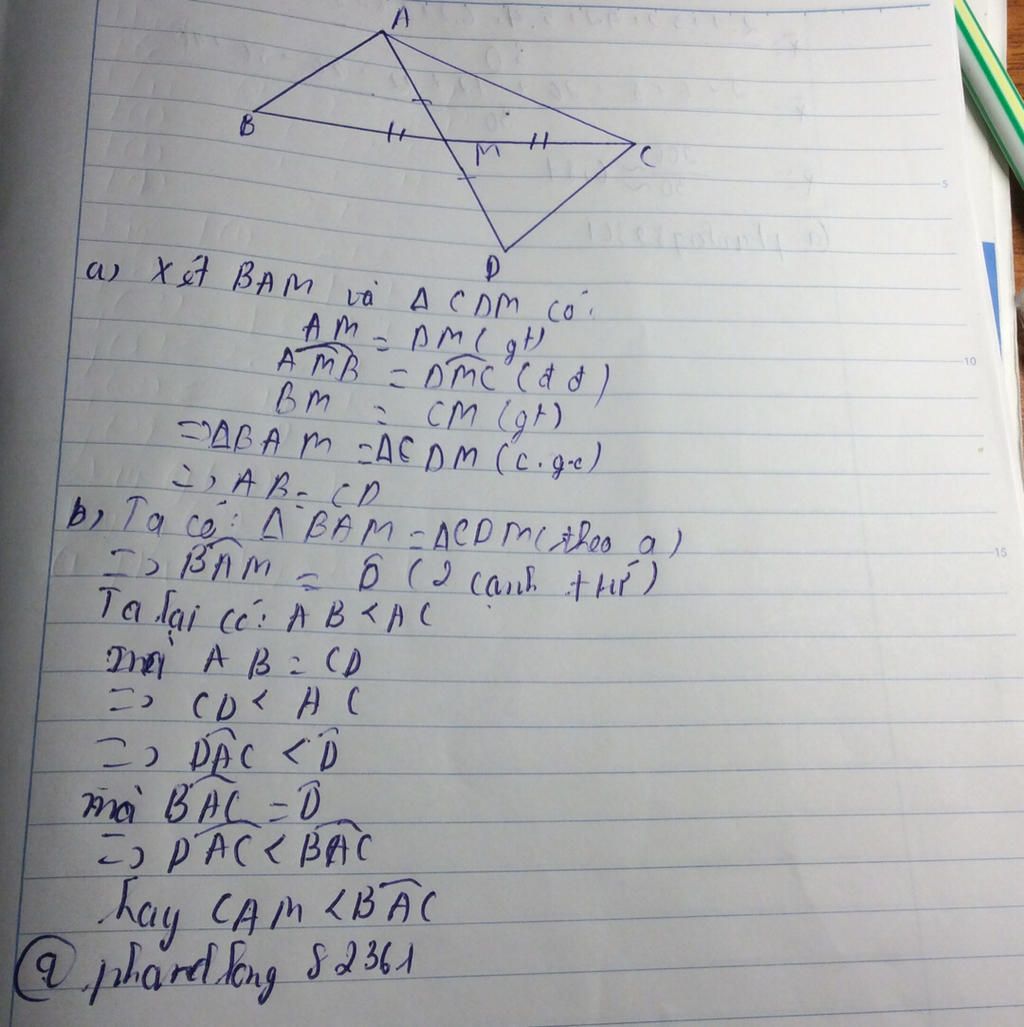 A
B
M
C
D
a) Xét BAM và Δ CDM có:
AM = DM (gt)
AMB = DMC (đ đ)
BM = CM (gt)
=> ΔBAM = ΔCDM (c.g.c)
=> AB = CD
b) Ta có: Δ BAM = ΔCDM (theo a)
=> BAM = D̂ (2 cạnh tứ)
Ta lại có: AB < AC
mà AB = CD
=> CD < AC
=> DAC < D̂
mà BAC = D̂
=> DAC < BAC
hay CAM < BAC
5
10
15